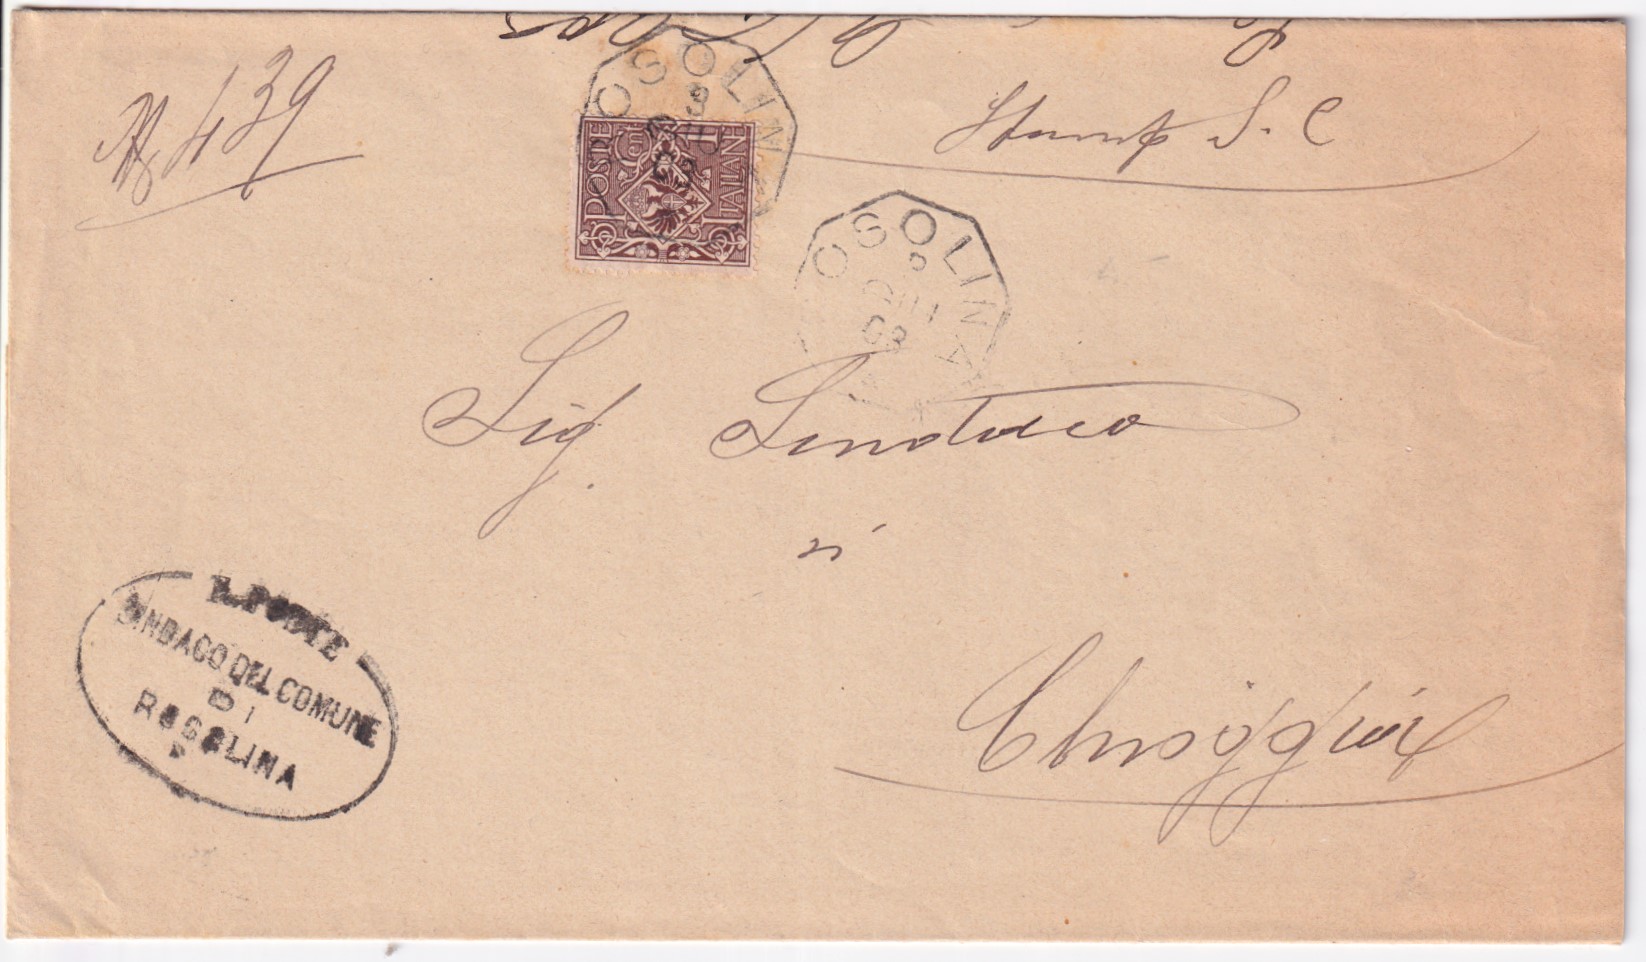 N 439
Stampe S. C
OSOLIN
POSTE ITALIANE
OSOLINA
03
Sig. Sindaco
di
Chioggia
R. POSTE
SINDACO DEL COMUNE
DI
ROSOLINA